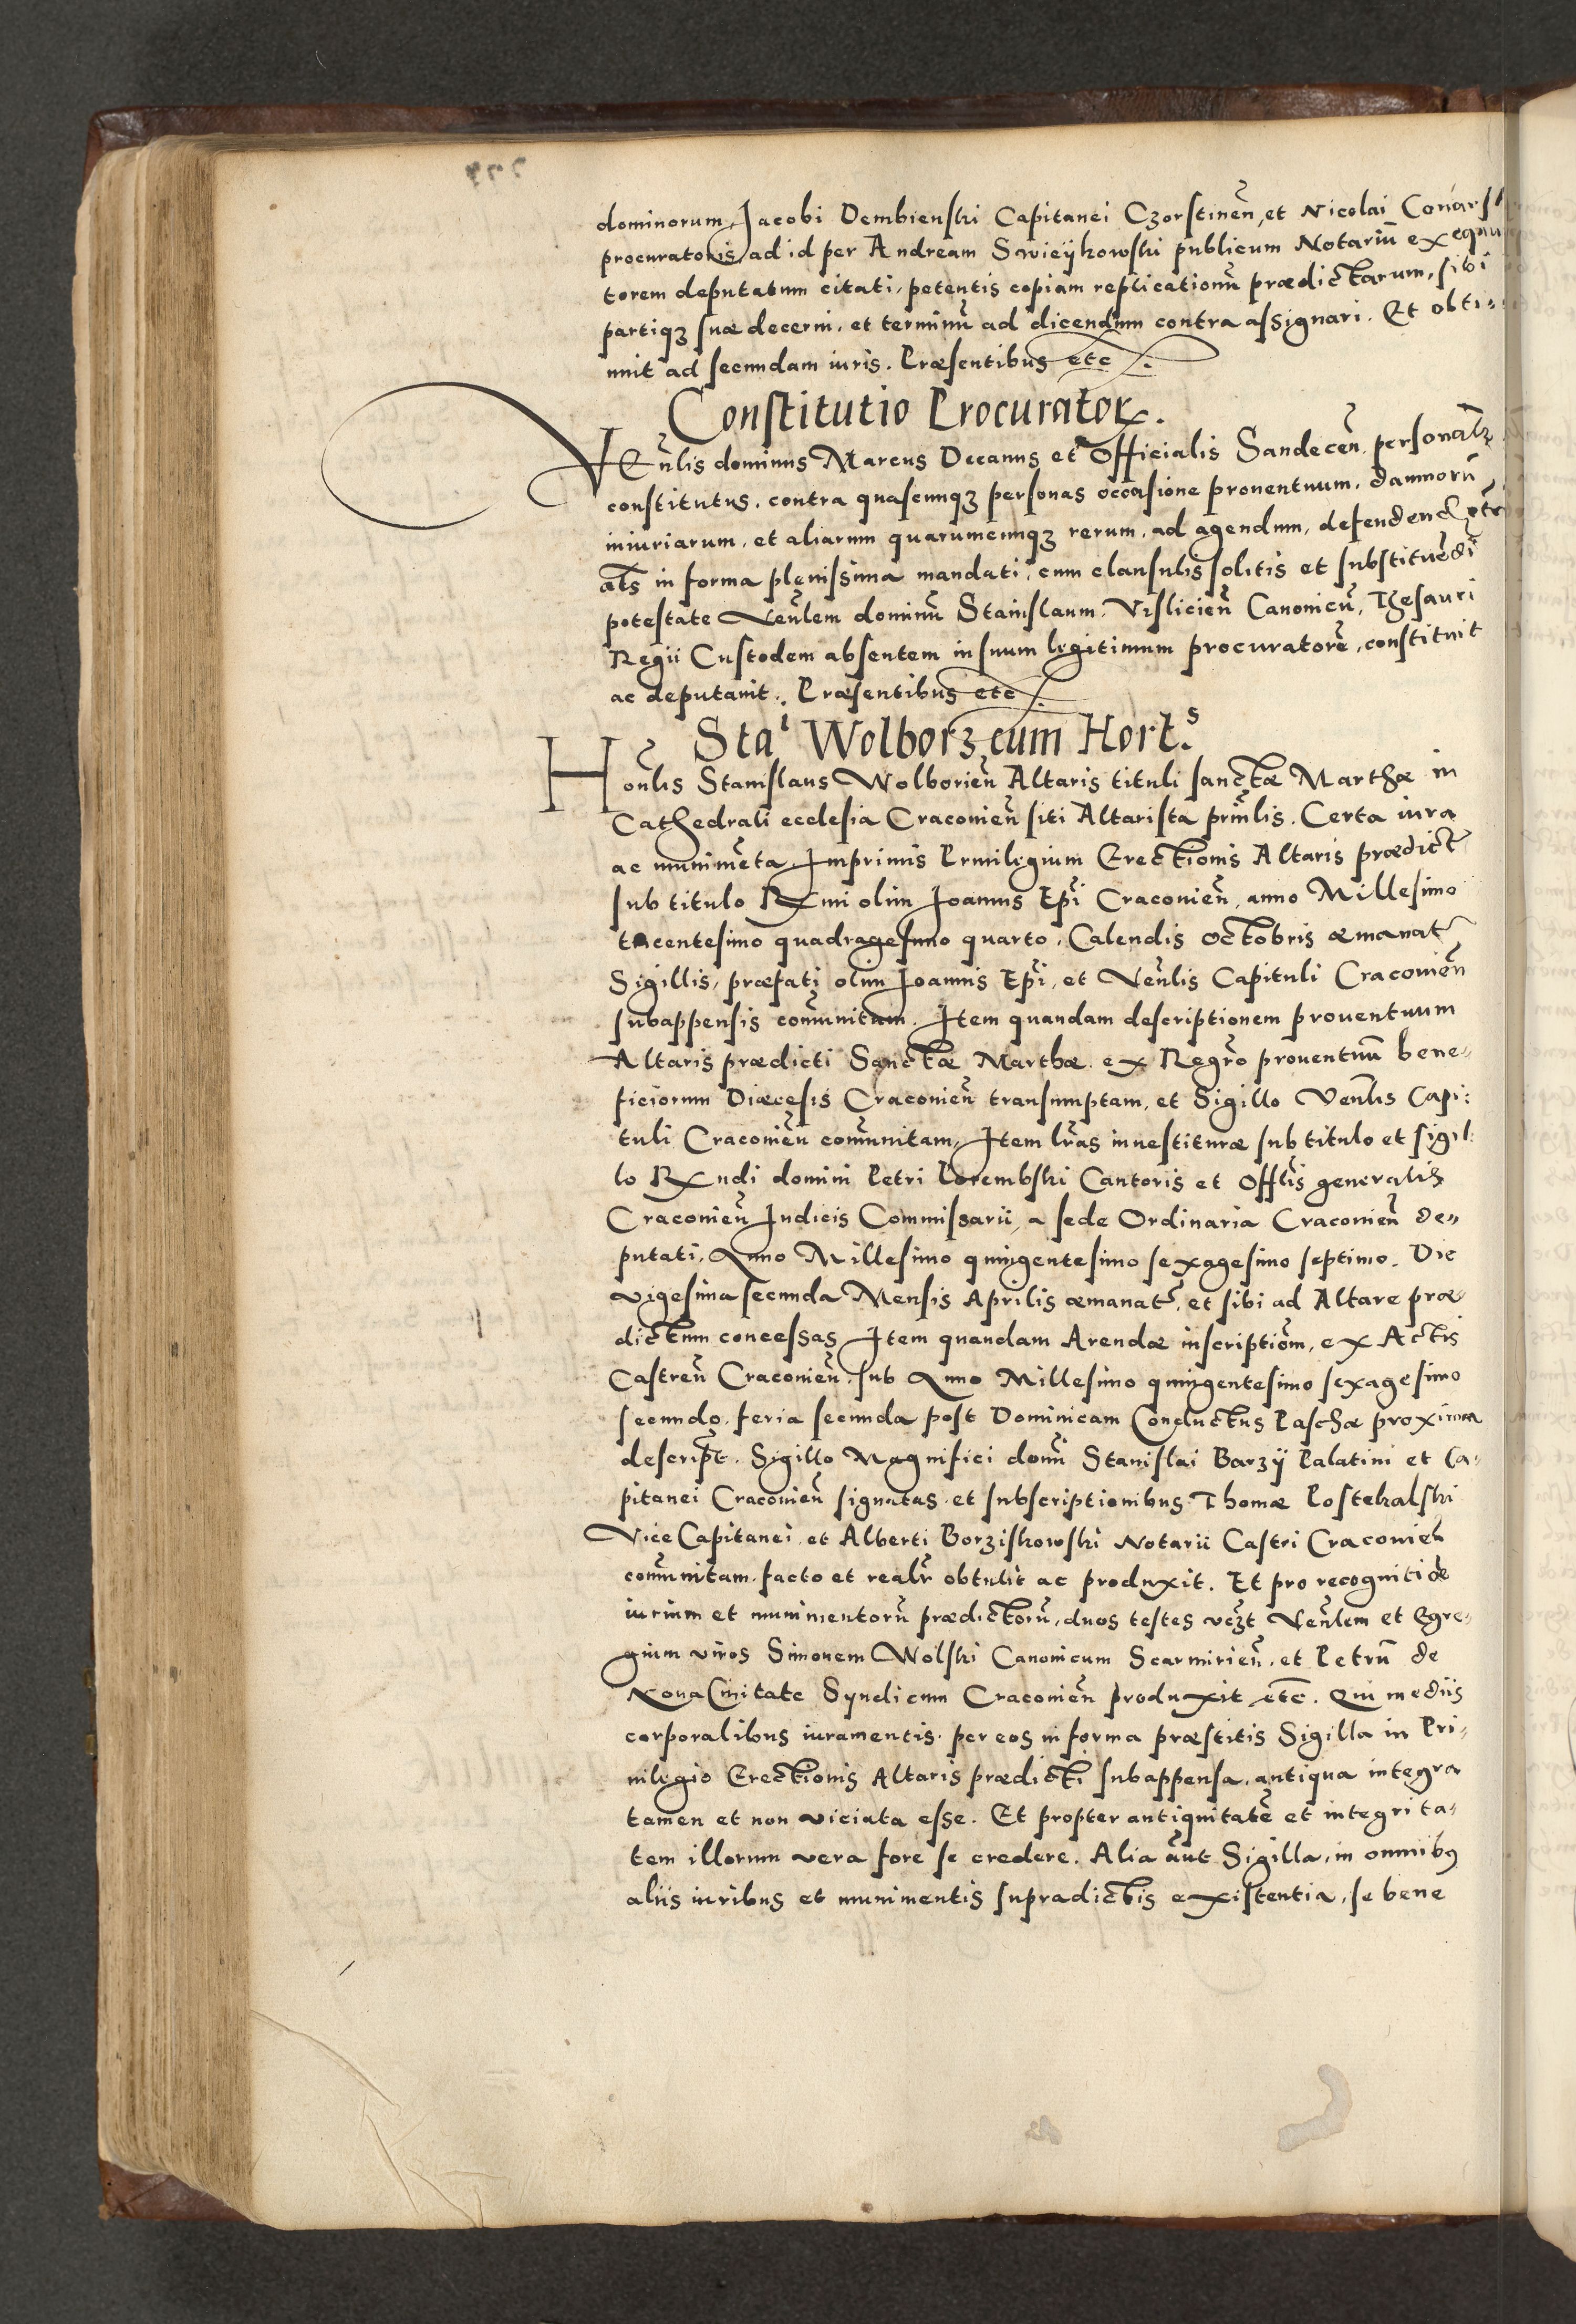 dominorum Jacobi Dembienski Capitanei Czorstineñ, et Nicolai
procuratoris, ad id per Andream Swieÿkowski publicum Notariũ
torem deputatum citati, petentis copiam replicationũ prædictarum, sibi
partiqꝫ suæ decerni, et terminũ ad dicendum contra assignari. Et obti-
nuit ad secundam iuris. Præsentibus etc
Constitutio Procuratorꝭ.
VEñlis dominus Marcus Decanus et Officialis Sandeceñ personalr
constitutus, contra quascunqꝫ personas occasione prouentuum, damnorũ
iniuriarum, et aliarum quarumcunqꝫ rerum, ad agendum, defendend etc
als in forma plenissima mandati, cum clausulis solitis et substituẽdi
potestate Veñlem dominũ Stanislaum Visliciẽn Canonicũ, Thesauri
Regii Custodem absentem in suum legitimum procuratorẽ, constituit
ac deputauit. Præsentibus etc
Staˡ Wolborz cum Hort.ˢ
Honlis Stanislaus Wolborieñ Altaris tituli sanctæ Marthæ in
Cathedrali ecclesia Craconieñ siti Altarista prñlis. Certa iura
ac munimẽta Imprimis Priuilegium Erectionis Altaris prædict
sub titulo Rmi olim Joannis Epĩ Craconieñ, anno Millesimo
tricentesimo quadragesimo quarto, Calendis octobris æmanat
Sigillis, præfati olim Joannis Epĩ, et Veñlis Capituli Craconieñ
subappensis com̃unitum. Item quandam descriptionem prouentuum
Altaris prædicti Sanctæ Marthæ ex Regr̃o prouentuũ bene-
ficiorum Diæcesis Craconieñ transumptam, et Sigillo Veñlis Capi:
tuli Craconieñ com̃unitam, Item lr̃as inuestituræ sub titulo et sigil:
lo Rx̃ndi domini Petri Porembski Cantoris et Offlis generalis
Craconieñ Judicis Commissarii, a sede Ordinaria Craconieñ de-
putati, Anno Millesimo quingentesimo sexagesimo septimo. Die
vigesima secunda Mensis Aprilis æmanat, et sibi ad Altare præ
dictum concessas Item quandam Arendæ inscriptiom̃, ex Actis
Castreñ Craconieñ, sub Anno Millesimo quingentesimo sexagesimo
secundo, feria secunda post Dominicam Conductus Paschæ proxima
descript. Sigillo Magnifici domĩ Stanislai Barzÿ Palatini et Ca-
pitanei Craconieñ signatas, et subscriptionibus Thomæ Postekalski
Vice Capitanei, et Alberti Borzikowski Notarii Castri Craconieñ
com̃unitam, facto et realr̃ obtulit ac produxit. Et pro recognitiõe
iurium et munimentorũ prædictorũ, duos testes veꝫt Veñlem et Egre-
gium viros Simonem Wolski Canonicum Scarmirieñ, et Petrũ de
Noua Ciuitate Syndicum Craconieñ produxit etc̃. Qui mediis
corporalibus iuramentis per eos in forma præstitis Sigilla in Pri-
uilegio Erectionis Altaris prædicti subappensa, antiqua integra
tamen et non viciata esse. Et propter antiquitatẽ et integrita-
tem illorum vera fore se credere. Alia aũt Sigilla, in omnibꝯ
aliis iuribus et munimentis supradictis existentia, se bene